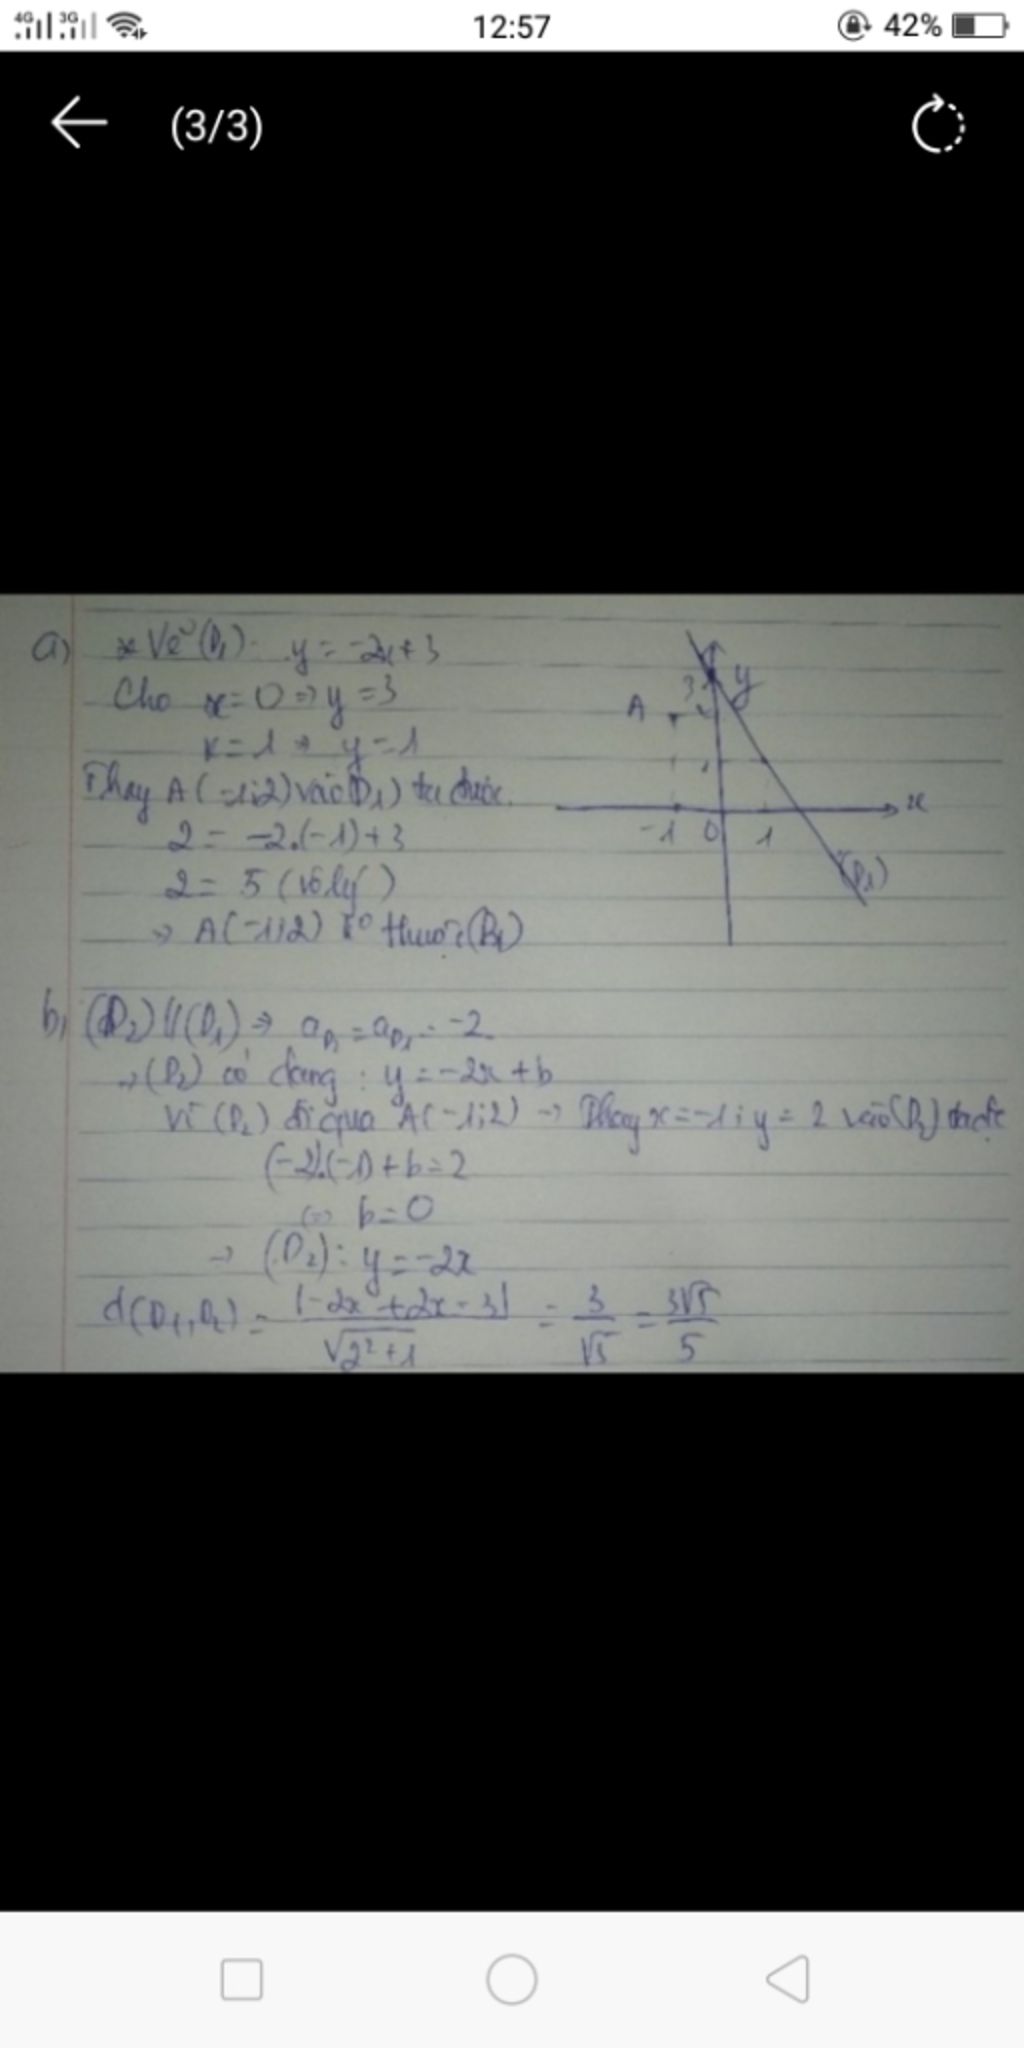 4G 3G 12:57 42%
(3/3)
a) * Vẽ (D₁): y = -2x + 3
Cho x = 0 => y = 3
x = 1 => y = 1
Thay A(-1;2) vào (D₁) ta được.
2 = -2.(-1) + 3
2 = 5 (vô lý)
=> A(-1;2) k° thuộc (D₁)
y
3
A
x
-1 0 1
(D₁)
b, (D₂) // (D₁) => a_D₂ = a_D₁ = -2
-> (D₂) có dạng : y = -2x + b
Vì (D₂) đi qua A(-1;2) -> Thay x = -1 ; y = 2 vào (D₂) ta đc
(-2).(-1) + b = 2
<=> b = 0
-> (D₂): y = -2x
d(D₁,D₂) = |-2x + 2x - 3| / √2² + 1 = 3/√5 = 3√5/5